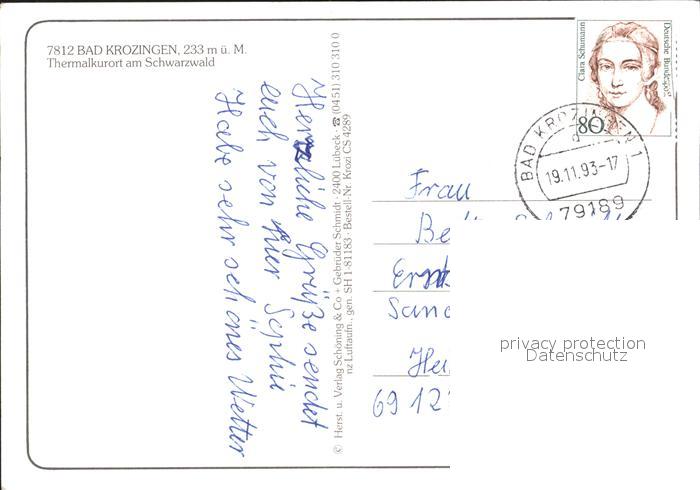 7812 BAD KROZINGEN, 233 m ü. M.
Thermalkurort am Schwarzwald
Herzliche Grüße sendet
euch von hier Sophie
Habe sehr schönes Wetter
© Herst. u. Verlag Schöning & Co + Gebrüder Schmidt · 2400 Lübeck · ☎ (0451) 310 310 0
nz Luftaufn., gen. SH 1-81183 · Bestell-Nr. Krozi CS 4289
Clara Schumann
Deutsche Bundespost
80
BAD KROZINGEN 1
d
19.11.93-17
79189
Frau
Be
Sand
Hei
69 12
privacy protection
Datenschutz